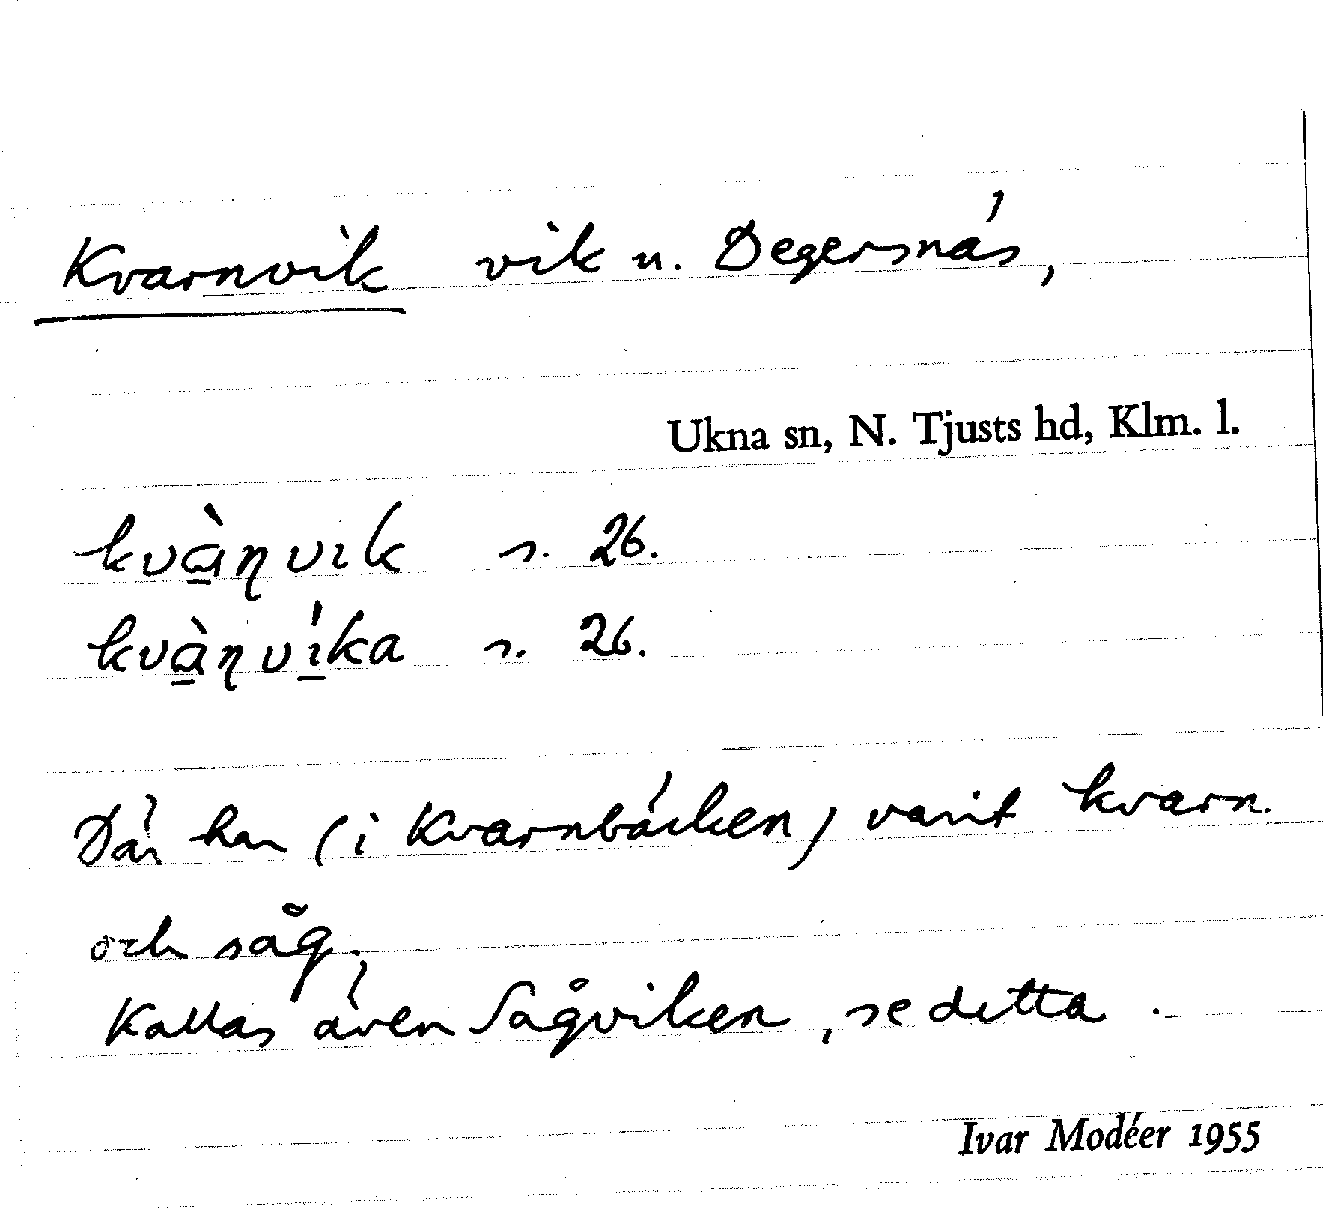 Kvarnvik vik u. Degersnäs,
Ukna sn, N. Tjusts hd, Klm. l.
kvà̱ɳvık s. 26.
kvà̱ɳvı̱́ka s. 26.
Där har (i Kvarnbäcken) varit kvarn.
och såg.
Kallas även Sågviken, se detta.
Ivar Modéer 1955